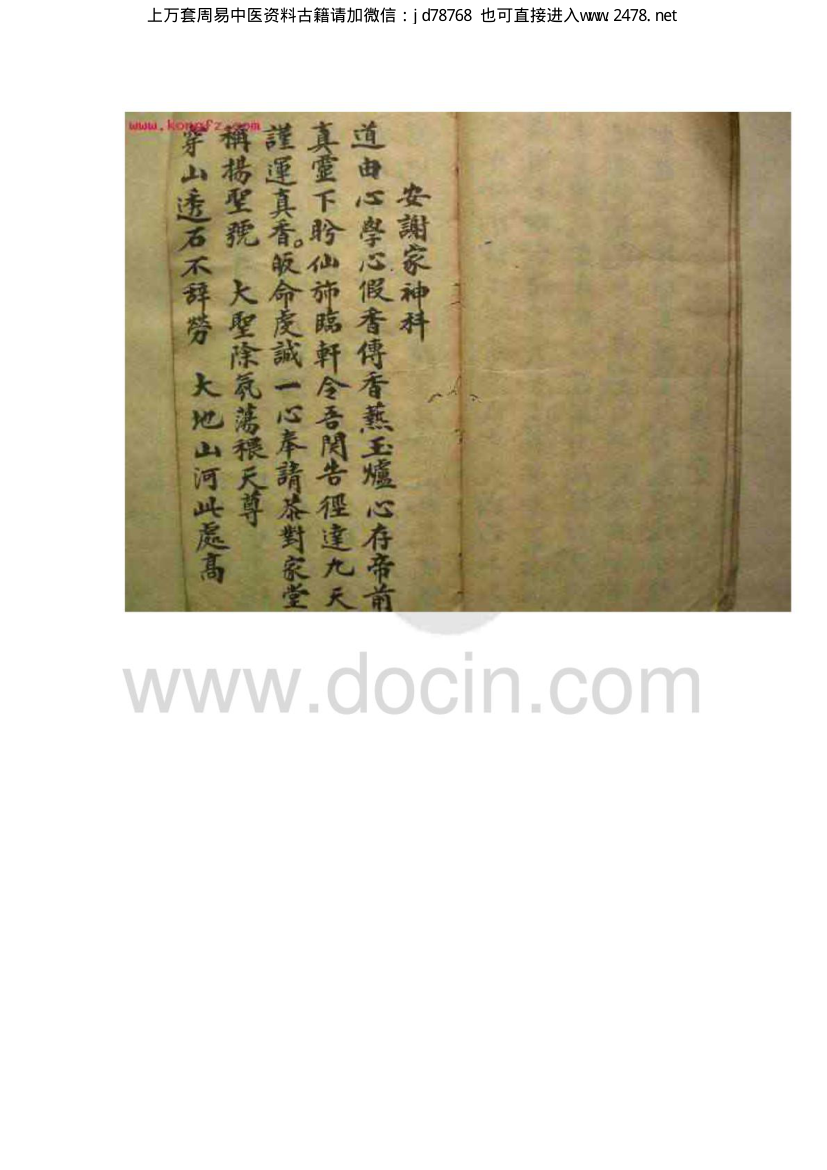 上万套周易中医资料古籍请加微信：jd78768 也可直接进入www.2478.net
www.kongfz.com
安謝家神科
道由心學心假香傳香爇玉爐心存帝前
真靈下盻仙斾臨軒令吾関告徑達九天
謹運真香。皈命虔誠一心奉請荼對家堂
稱揚聖號 大聖除氛蕩穢天尊
穿山透石不辞勞 大地山河此處高
www.docin.com